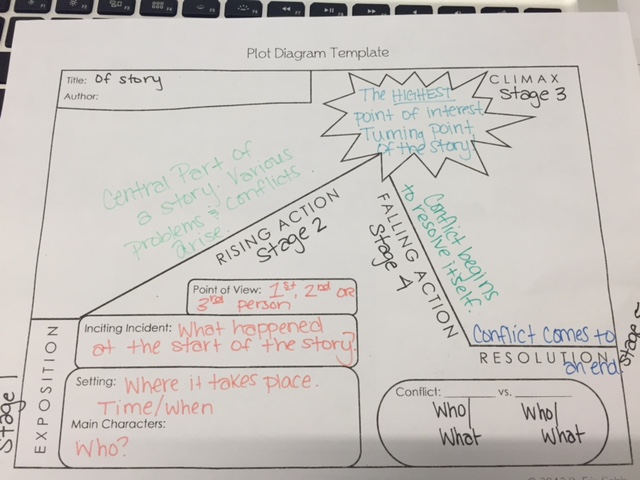 Plot Diagram Template
Title: Of story
Author:
CLIMAX
Stage 3
The HIGHEST
point of interest
Turning point
of the story
Central Part of
a story. Various
problems & conflicts
arise.
RISING ACTION
Stage 2
FALLING ACTION
Stage 4
Conflict begins
to resolve itself.
Point of View: 1st, 2nd OR
3rd person
EXPOSITION
Stage 1
Inciting Incident: What happened
at the start of the story?
Setting: Where it takes place.
Time/when
Main Characters:
Who?
Conflict comes to
an end.
RESOLUTION
Stage 5
Conflict: ________ vs. ________
Who/ Who/
What What